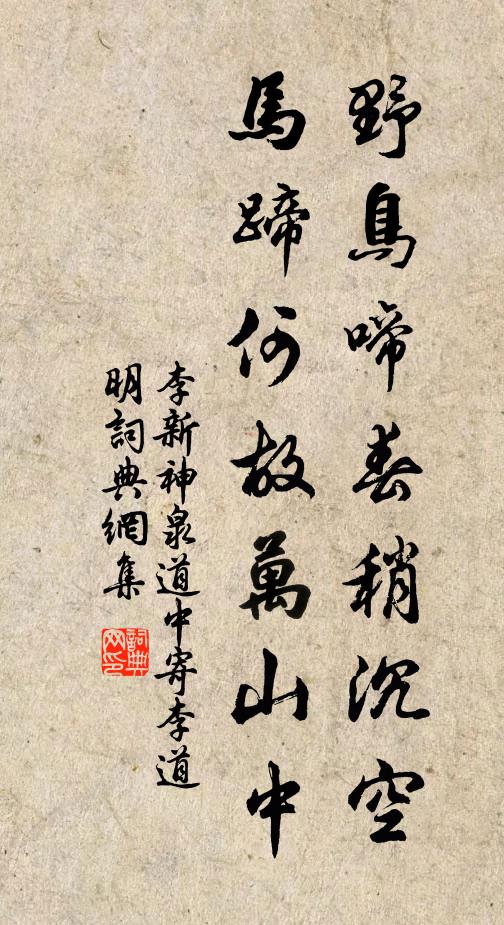 野鳥啼春稍沉空
馬蹄何故萬山中
李新神泉道中寄李道
明詞典網集
詞典
网印